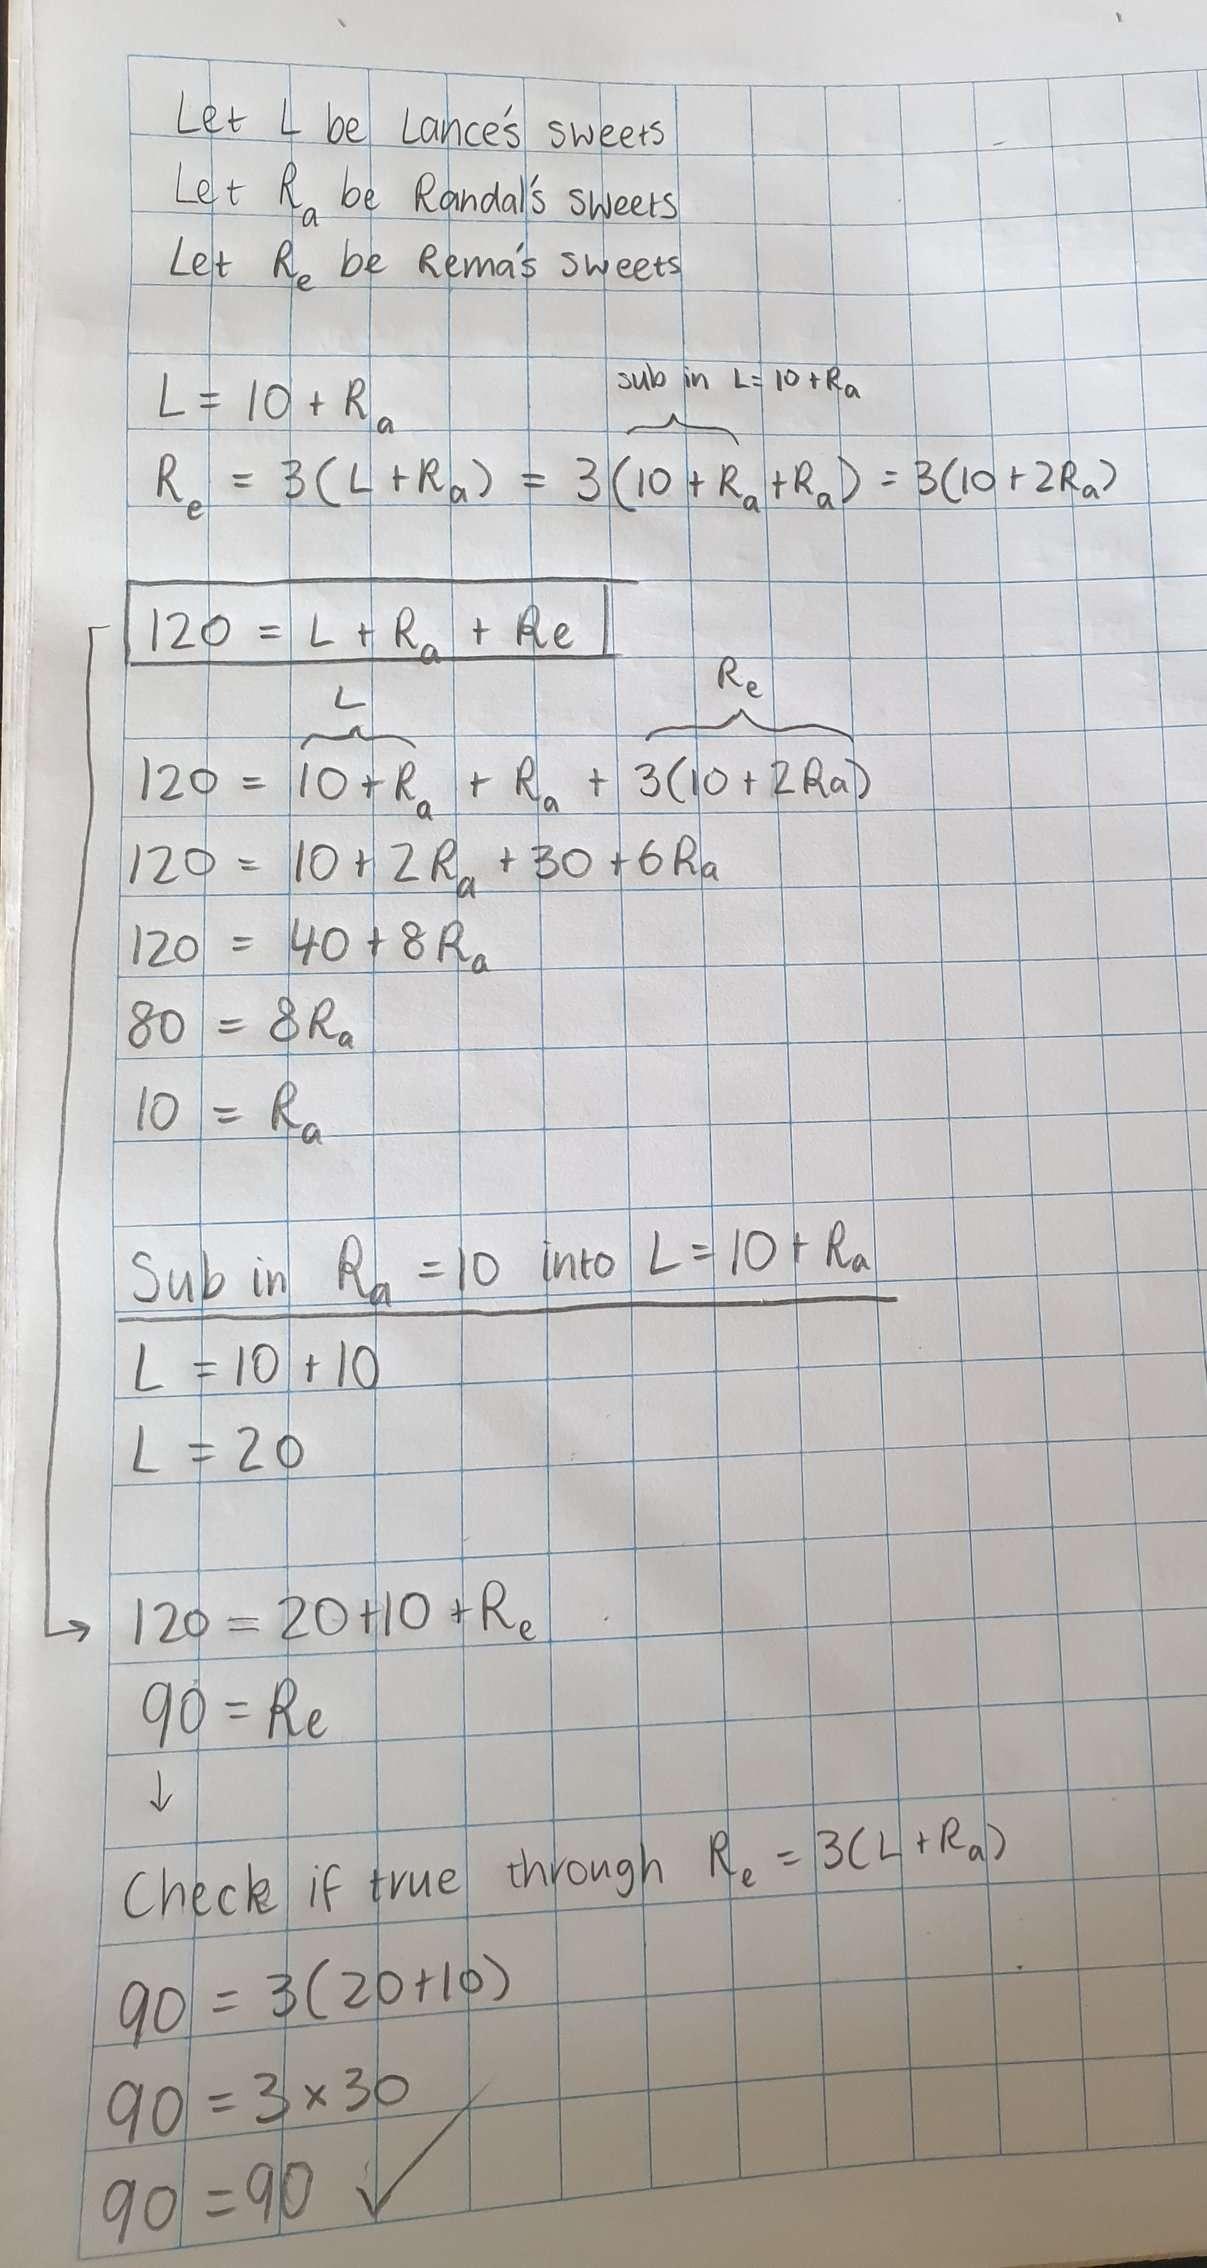 Let L be Lance's sweets
Let Rₐ be Randal's sweets
Let Rₑ be Rema's sweets
sub in L = 10 + Rₐ
L = 10 + Rₐ
Rₑ = 3(L + Rₐ) = 3(10 + Rₐ + Rₐ) = 3(10 + 2Rₐ)
120 = L + Rₐ + Re
L
Rₑ
120 = 10 + Rₐ + Rₐ + 3(10 + 2Ra)
120 = 10 + 2Rₐ + 30 + 6Ra
120 = 40 + 8Rₐ
80 = 8Rₐ
10 = Rₐ
Sub in Rₐ = 10 into L = 10 + Rₐ
L = 10 + 10
L = 20
→ 120 = 20 + 10 + Rₑ
90 = Re
↓
Check if true through Rₑ = 3(L + Rₐ)
90 = 3(20 + 10)
90 = 3 × 30
90 = 90 ✓